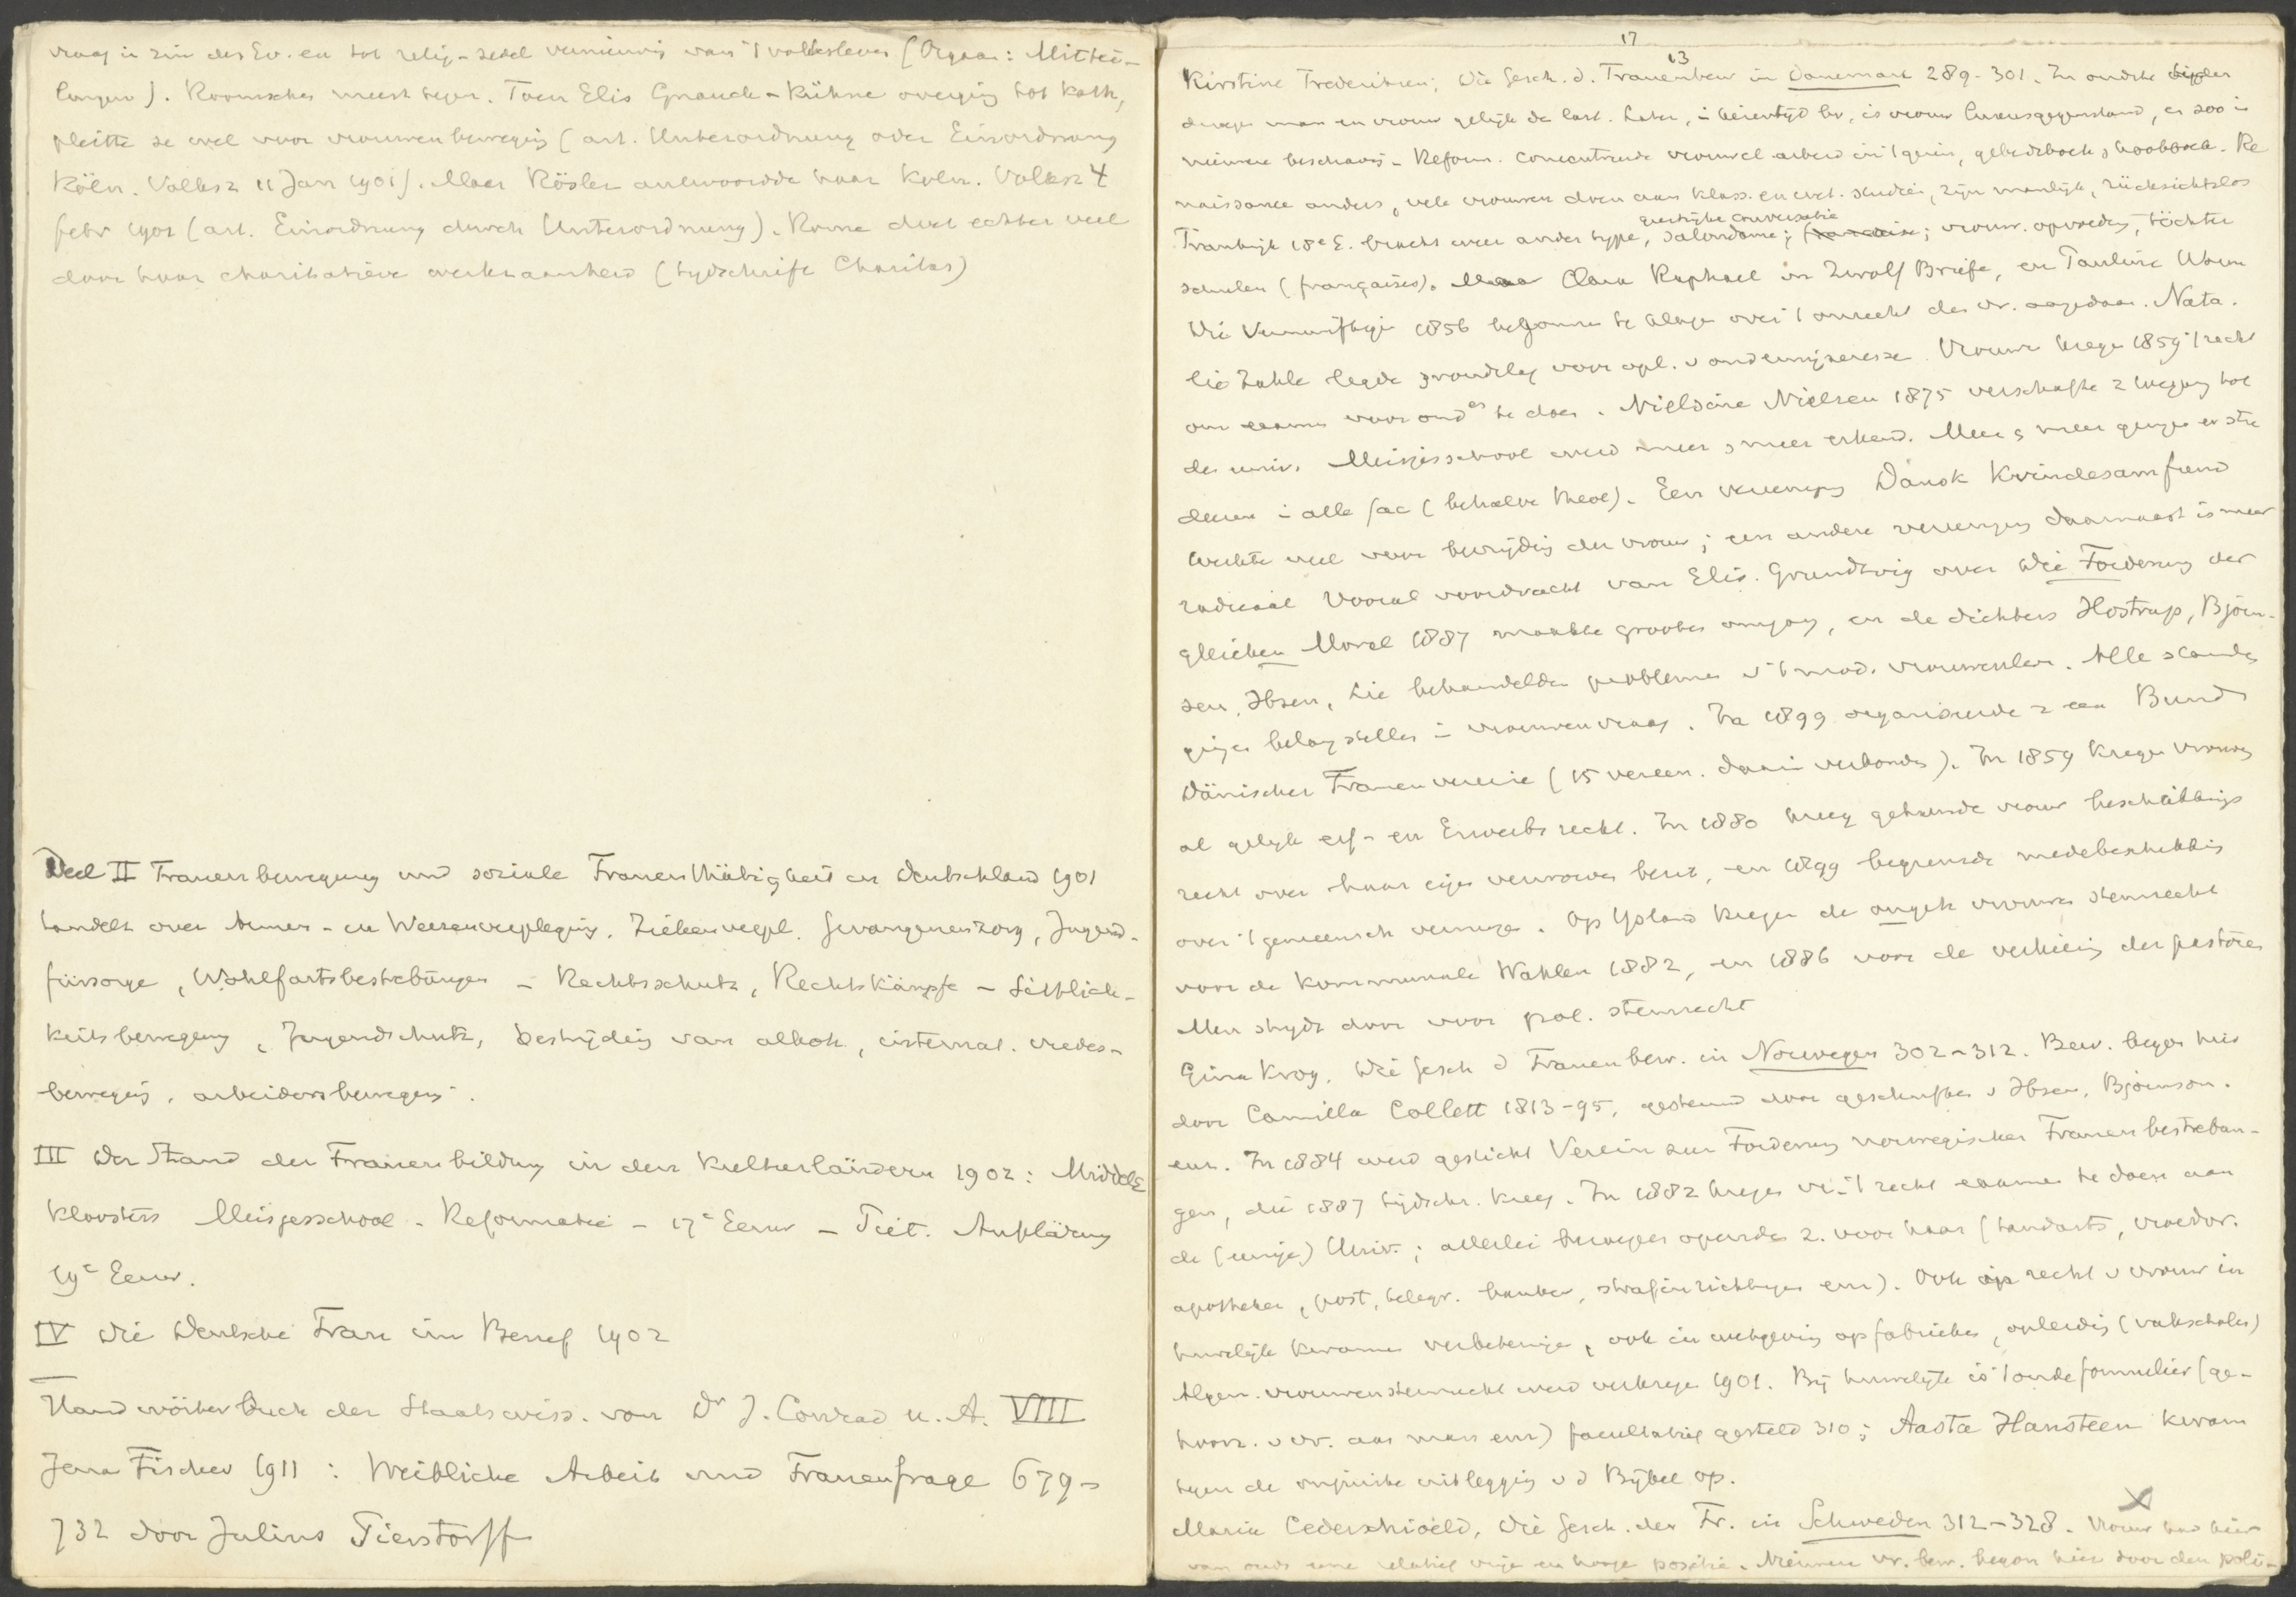 vraag in zin des Ev. en tot relig-zedel vernieuwing van 't volksleven (Orgaan: Mittei-
lungen). Roomschen meest tegen. Toen Elis Gnauck-Kühne overging tot kath,
pleitte ze wel voor vrouwenbeweging (art. Unterordnung oder Einordnung
Köln. Volksz 11 Jan 1901). Maar Rösler antwoordde haar Köln. Volksz 4
febr 1901 (art. Einordnung durch Unterordnung). Rome doet echter veel
door haar charitatieve werkzaamheid (tydschrift Charitas)
Deel II Frauenbewegung und soziale Frauenthätigkeit in Deutschland 1901
handelt over Armen- en Weezenverpleging, Ziekenverpl. Gevangenenzorg, Jugend-
fürsorge, Wohlfartsbestrebungen - Rechtsschutz, Rechtskämpfe - Sittlich-
keitsbewegung, Jugendschutz, bestrijding van alkoh, internat. vredes-
beweging, arbeidersbeweging.
III Der Stand der Frauenbildung in den Kulturländern 1902: Midd
Kloosters Meisjesschool - Reformatie - 17e Eeuw - Piët. Aufklärung
19e Eeuw.
IV Die Deutsche Frau im Beruf 1902
Handwörterbuch der Staatswiss. von Dr J. Conrad u. A. VIII
Jena Fischer 1911: Weibliche Arbeit und Frauenfrage 679-
732 door Julius Pierstorff
17
13
Kirstine Frederiksen; Die Gesch. d. Frauenbew in Danemark 289-301. In oudste tijden
droegen man en vrouw gelijk de last. Later, in heerentijd bv, is vrouw luxusgegenstand, en zoo in
nieuwere beschaving - Reform. concentreerde vrouwel arbeid in 't gezin, gebedsboek & kookboek. Re
naissance anders, vele vrouwen doen aan klass. en wet. studiën, zijn manlijk, rücksichtslos
geestrijke conversatie
Frankrijk 18e E. bracht weer ander type, salondame; ; vrouw. opvoeding, töchter
schulen (françaises). Maar Clara Raphael in Zwölf Briefe, en Pauline Worm
Die Vernünftigen 1856 begonnen te klagen over 't onrecht der vr. aangedaan. Nata.
lie Zahle legde grondslag voor opl. v onderwijzeressen. Vrouwen kregen 1859 't recht
om examen voor ondes te doen. Nielsine Nielsen 1875 verschafte z toegang tot
de univ. Meisjesschool werd meer & meer erkend. Meer & meer gingen er stu
deeren in alle fac (behalve theol). Een vereeniging Dansk Kvindesamfund
werkte veel voor bevrijding der vrouw; een andere vereeniging daarnaast is meer
radicaal Vooral voordracht van Elis. Grundtvig over Die Forderung der
gleichen Moral 1887 maakte grooten omgang, en de dichters Hostrup, Björn-
sen, Ibsen, die behandelden problemen v 't mod. vrouwenleven. Alle standen
gingen belang stellen in vrouwenvraag. In 1899 organiseerde z een Bund
Dänischer Frauenvereine (15 vereen. daarin verbonden). In 1859 kregen vrouwen
al gelijk erf- en Erwerbsrecht. In 1880 kreeg gehuwde vrouw beschikkings
recht over haar eigen verworven bezit, en 1899 begrensde medebeschikking
over 't gemeensch vermogen. Op Ysland kregen de ongeh vrouwen stemrecht
voor de Kommunale Wahlen 1882, en 1886 voor de verkiezing der pastores
Men strydt door voor pol. stemrecht
Gina Krog, Die Gesch d Frauenbew. in Norwegen 302-312. Bew. begon hier
door Camilla Collett 1813-95, gesteund door geschriften v Ibsen, Björnson.
enz. In 1884 werd gesticht Verein zur Forderung norwegischer Frauenbestrebun-
gen, die 1887 tijdschr. kreeg. In 1882 kregen vr. 't recht examen te doen aan
de (eenige) Univ.; allerlei beroepen openden z. voor haar (tandarts, vroedvr.
apotheker, post, telegr. banken, strafinrichtingen enz). Ook in recht v vrouw in
huwelijk kwamen verbeteringen, ook in wetgeving op fabrieken, opleiding (vakscholen)
Algem. vrouwenstemrecht werd verkregen 1901. Bij huwelijk is 't oude formulier (ge-
hoorz. v vr. aan man enz) facultatief gesteld 310; Aasta Hansteen kwam
tegen de onjuiste uitlegging v d Bijbel op.
Maria Cederschioeld, Die Gesch. der Fr. in Schweden 312-328. Vrouw had hier
van ouds eene relatief vrije en hooge positie. Nieuwere vr. bew. begon hier door den poli-